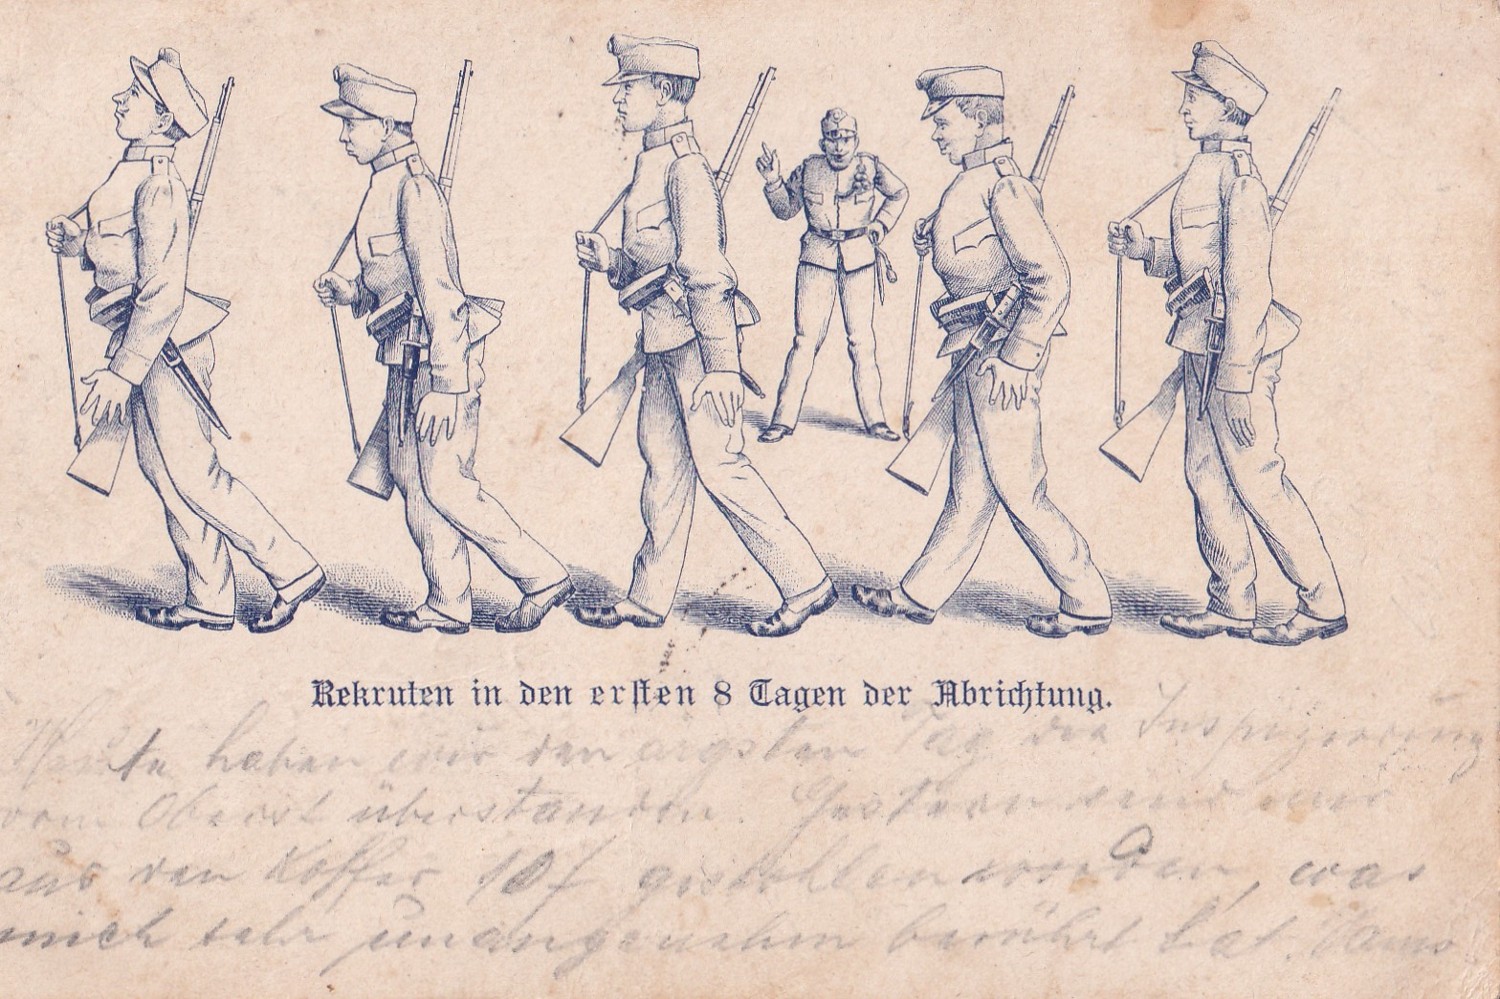 Rekruten in den ersten 8 Tagen der Abrichtung.
Heute haben wir den ärgsten Tag die Inspizierung
vom Oberst überstanden. Gestern sind mir
aus den Koffer 10 f gestohlen worden, was
mich sehr unangenehm berührt hat.